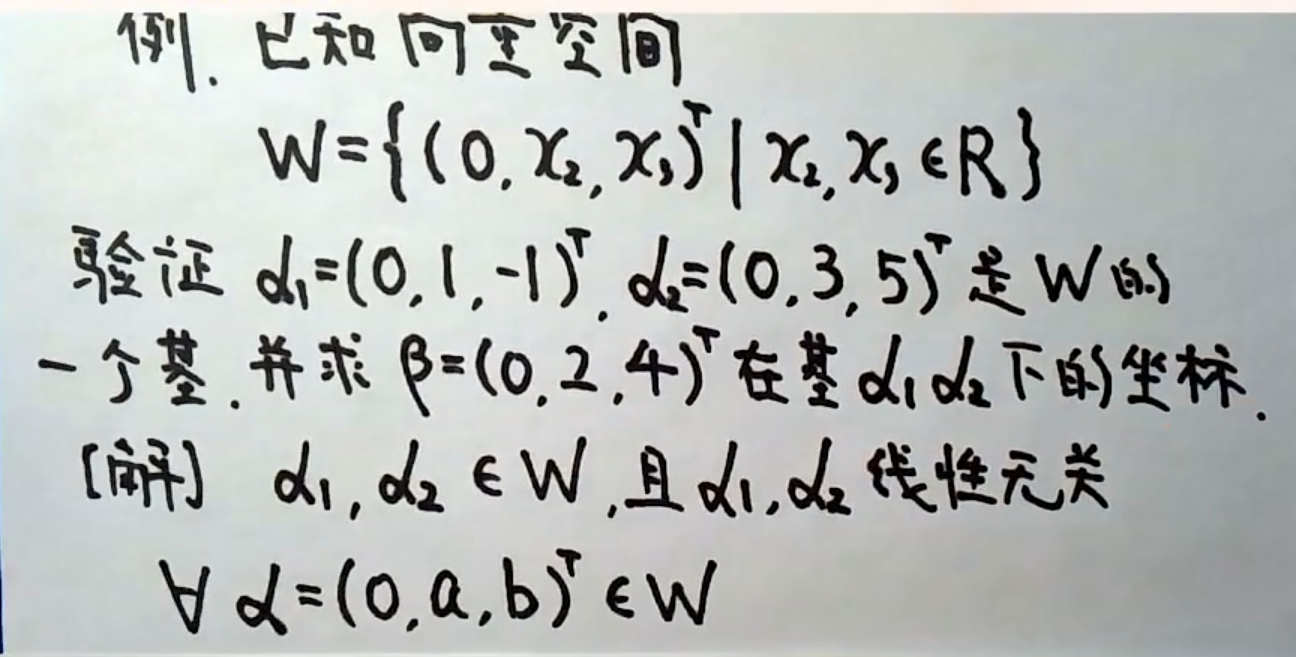 例. 已知向量空间
W={(0, x₂, x₃)ᵀ | x₂, x₃ ∈R}
验证 α₁=(0,1,-1)ᵀ, α₂=(0,3,5)ᵀ 是W的
一个基. 并求 β=(0,2,4)ᵀ 在基 α₁ α₂ 下的坐标.
[解] α₁, α₂ ∈ W, 且 α₁, α₂ 线性无关
∀ α=(0,a,b)ᵀ ∈W